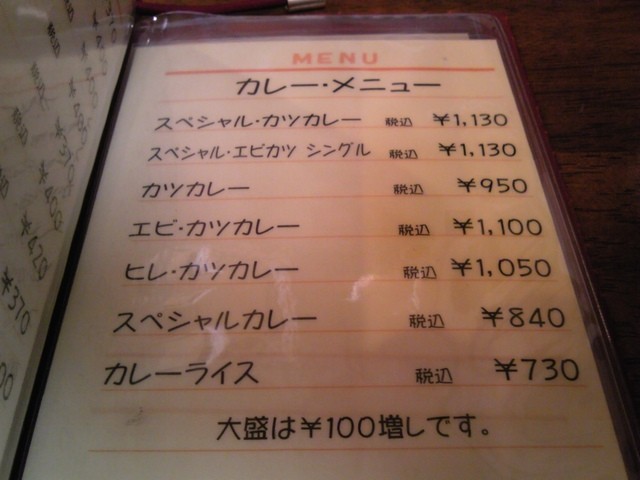 MENU
カレー・メニュー
スペシャル・カツカレー 税込 ¥1,130
スペシャル・エビカツ シングル 税込 ¥1,130
カツカレー 税込 ¥950
エビ・カツカレー 税込 ¥1,100
ヒレ・カツカレー 税込 ¥1,050
スペシャルカレー 税込 ¥840
カレーライス 税込 ¥730
大盛は¥100増しです。
¥420
¥370